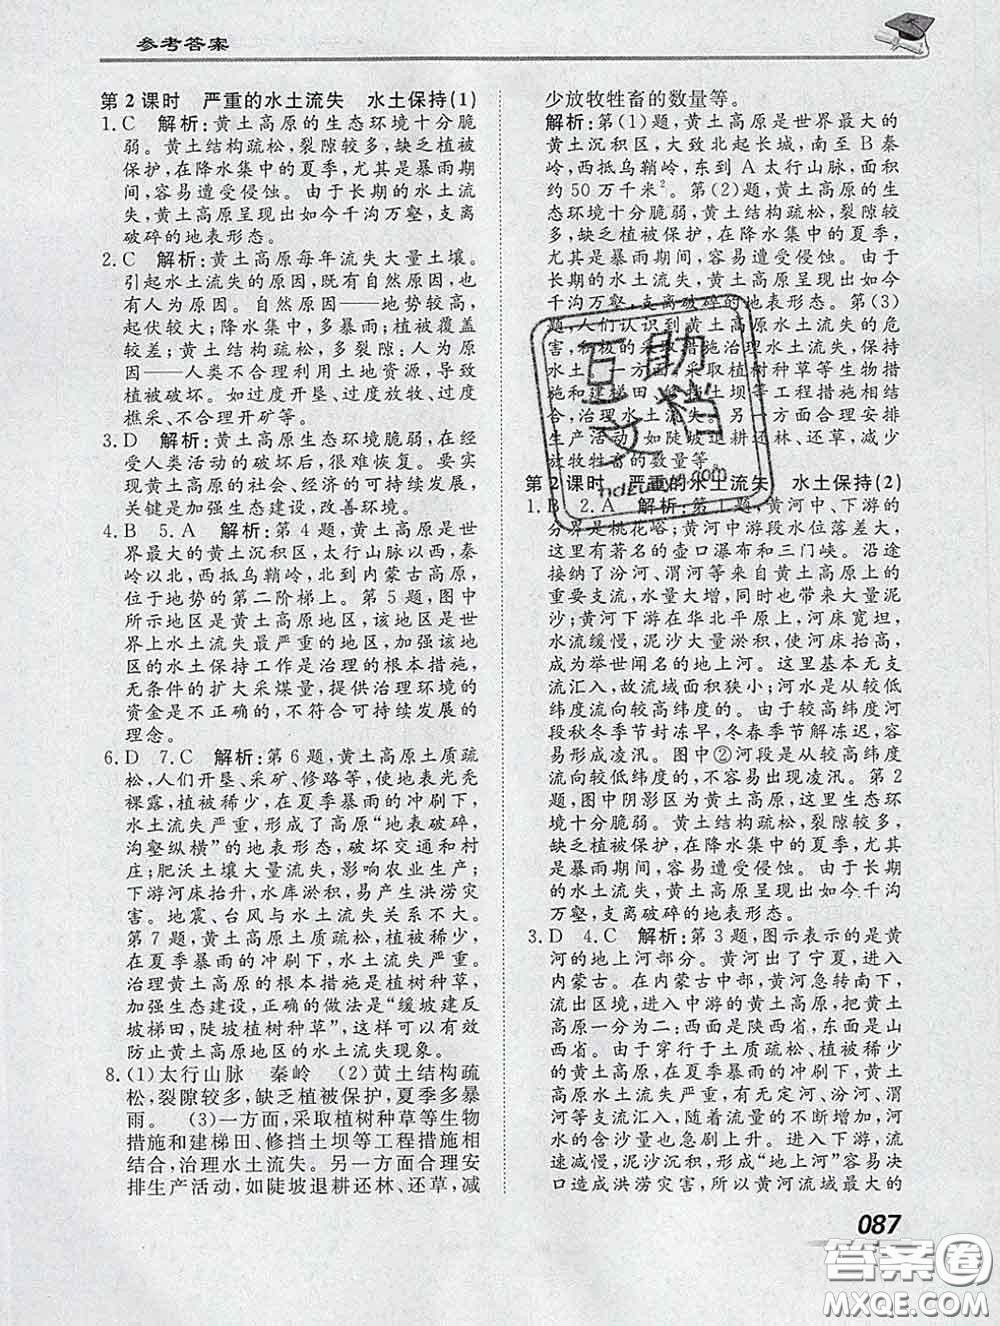 参考答案
第2课时 严重的水土流失 水土保持(1)
1.C 解析:黄土高原的生态环境十分脆
弱。黄土结构疏松,裂隙较多,缺乏植被
保护,在降水集中的夏季,尤其是暴雨期
间,容易遭受侵蚀。由于长期的水土流
失,黄土高原呈现出如今千沟万壑,支离
破碎的地表形态。
2.C 解析:黄土高原每年流失大量土壤。
引起水土流失的原因,既有自然原因,也
有人为原因。自然原因——地势较高,
起伏较大;降水集中,多暴雨;植被覆盖
较差;黄土结构疏松,多裂隙;人为原
因——人类不合理利用土地资源,导致
植被破坏。如过度开垦、过度放牧、过度
樵采、不合理开矿等。
3.D 解析:黄土高原生态环境脆弱,在经
受人类活动的破坏后,很难恢复。要实
现黄土高原的社会、经济的可持续发展,
关键是加强生态建设,改善环境。
4.B 5.A 解析:第4题,黄土高原是世
界最大的黄土沉积区,太行山脉以西,秦
岭以北,西抵乌鞘岭,北到内蒙古高原,
位于地势的第二阶梯上。第5题,图中
所示地区是黄土高原地区,该地区是世
界上水土流失最严重的地区,加强该地
区的水土保持工作是治理的根本措施,
无条件的扩大采煤量,提供治理环境的
资金是不正确的,不符合可持续发展的
理念。
6.D 7.C 解析:第6题,黄土高原土质疏
松,人们开垦、采矿、修路等,使地表光秃
裸露,植被稀少,在夏季暴雨的冲刷下,
水土流失严重,形成了高原“地表破碎,
沟壑纵横”的地表形态,破坏交通和村
庄;肥沃土壤大量流失,影响农业生产;
下游河床抬升,水库淤积,易产生洪涝灾
害。地震、台风与水土流失关系不大。
第7题,黄土高原土质疏松,植被稀少,
在夏季暴雨的冲刷下,水土流失严重。
治理黄土高原的根本措施是植树种草,
加强生态建设,正确的做法是“缓坡建反
坡梯田,陡坡植树种草”,这样可以有效
防止黄土高原地区的水土流失现象。
8.(1)太行山脉 秦岭 (2)黄土结构疏
松,裂隙较多,缺乏植被保护,夏季多暴
雨。 (3)一方面,采取植树种草等生物
措施和建梯田、修挡土坝等工程措施相
结合,治理水土流失。另一方面合理安
排生产活动,如陡坡退耕还林、还草,减
少放牧牲畜的数量等。
解析:第(1)题,黄土高原是世界最大的
黄土沉积区,大致北起长城,南至B秦
岭,西抵乌鞘岭,东到A太行山脉,面积
约50万千米²。第(2)题,黄土高原的生
态环境十分脆弱,黄土结构疏松,裂隙较
多,缺乏植被保护,在降水集中的夏季,
尤其是暴雨期间,容易遭受侵蚀。由于
长期的水土流失,黄土高原呈现出如今
千沟万壑,支离破碎的地表形态。第(3)
题,人们认识到黄土高原水土流失的危
害,积极的采取措施治理水土流失,保持
水土。一方面,采取植树种草等生物措
施和建梯田、修挡土坝等工程措施相结
合,治理水土流失。另一方面合理安排
生产活动,如陡坡退耕还林、还草,减少
放牧牲畜的数量等。
第2课时 严重的水土流失 水土保持(2)
1.B 2.A 解析:第1题,黄河中、下游的
分界是桃花峪;黄河中游段水位落差大,
这里有著名的壶口瀑布和三门峡。沿途
接纳了汾河、渭河等来自黄土高原上的
重要支流,水量大增,同时也带来大量泥
沙;黄河下游在华北平原上,河床宽坦,
水流缓慢,泥沙大量淤积,使河床抬高,
成为举世闻名的地上河。这里基本无支
流汇入,故流域面积狭小;河水是从较低
纬度流向较高纬度的。由于较高纬度河
段秋冬季节封冻早,冬春季节解冻迟,容
易形成凌汛。图中②河段是从较高纬度
流向较低纬度的,不易出现凌汛。第2
题,图中阴影区为黄土高原,这里生态环
境十分脆弱。黄土结构疏松,裂隙较多,
缺乏植被保护,在降水集中的夏季,尤其
是暴雨期间,容易遭受侵蚀。由于长期
的水土流失,黄土高原呈现出如今千沟
万壑,支离破碎的地表形态。
3.D 4.C 解析:第3题,图示表示的是黄
河的地上河部分。黄河出了宁夏,进入
内蒙古。在内蒙古中部,黄河急转南下,
流出区境,进入中游的黄土高原,把黄土
高原一分为二:西面是陕西省,东面是山
西省。由于穿行于土质疏松、植被稀少、
水土流失严重的黄土高原,又有无定河、汾河、渭河
等支流汇入,随着流量的不断增加,黄
河水的含沙量也急剧上升。进入下游,流
速减慢,泥沙沉积,形成“地上河”容易决
口造成洪涝灾害,所以黄河流域最大的
087
互助文档
hdzuoye.com
答案圈
MXQE.COM